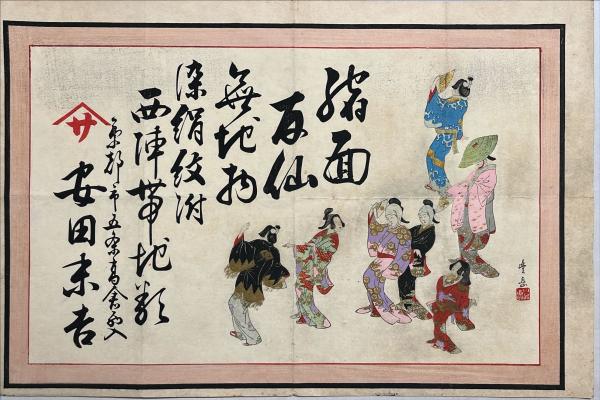 縮面
友仙
無地物
染絹紋附
西陣帯地類
京都市五条高倉西入
サ
安田末吉